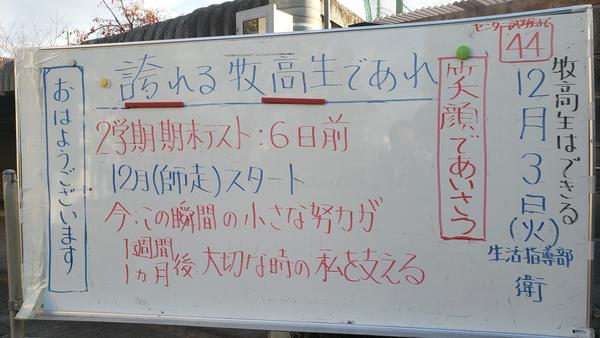 センター試験まで
44
牧高生はできる
12月3日(火)
生活指導部
衛
笑顔であいさつ
誇れる牧高生であれ
2学期期末テスト:6日前
12月(師走)スタート
今:この瞬間の小さな努力が
1週間
1ヵ月
後 大切な時の私を支える
おはようございます